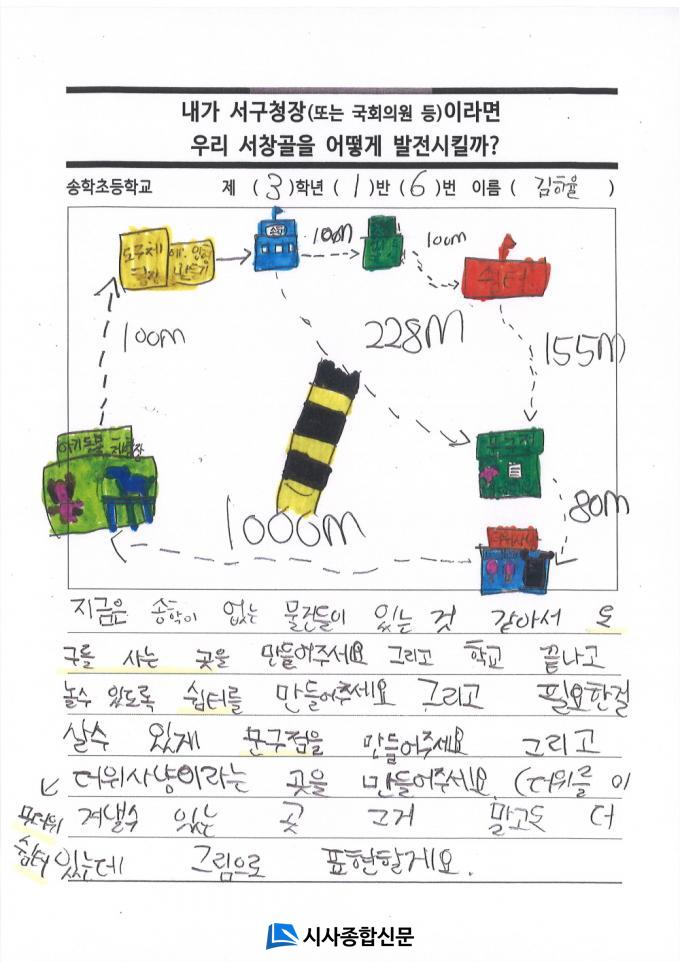 내가 서구청장(또는 국회의원 등)이라면
우리 서창골을 어떻게 발전시킬까?
송학초등학교 제 (3)학년 (1)반 (6)번 이름 (김하율)
100M
100M
쉼터
100M
228M
155M
80M
1000M
지금은 송학이 없는 물건들이 있는 것 같아서 도
구를 사는 곳을 만들어주세요 그리고 학교 끝나고
놀수 있도록 쉼터를 만들어주세요 그리고 필요한걸
살수 있게 문구점을 만들어주세요 그리고
더위사냥이라는 곳을 만들어주세요. (더위를 이
겨낼수 있는 곳 그거 말고도 더
있는데 그림으로 표현할게요.
무더위
쉼터
시사종합신문